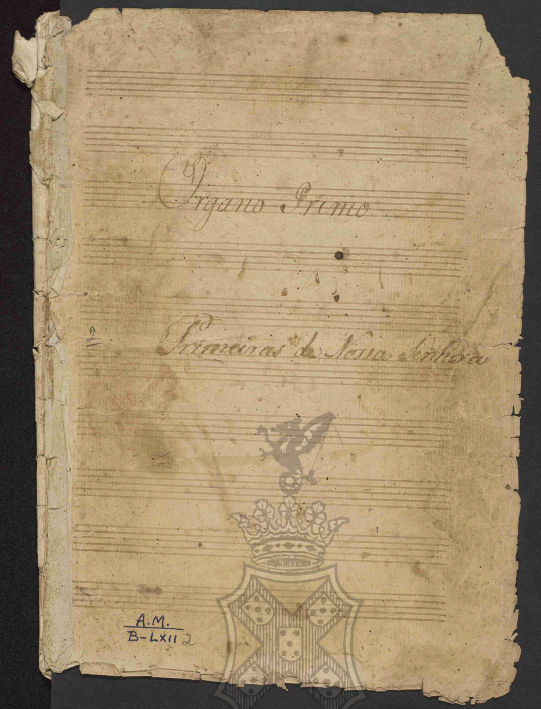 1
Organo Primo
2 Primeiras de Nossa Senhora
A.M.
B-LXII 2